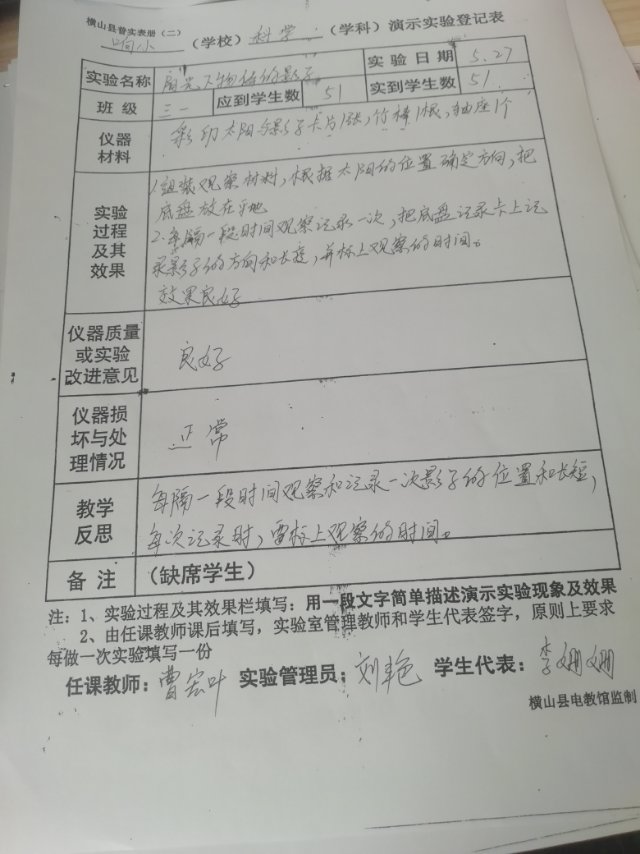 横山县普实表册（二）
响小（学校）科学（学科）演示实验登记表
实验名称 阳光下物体的影子 实验日期 5.27
班级 三一 应到学生数 51 实到学生数 51
仪器材料 彩印太阳与影子卡片1张，竹棒1根，插座1个
实验过程及其效果
1.组装观察材料，根据太阳的位置确定方向，把
底盘放在平地
2.每隔一段时间观察记录一次，把底盘记录卡上记
录影子的方向和长度，并标上观察的时间。
效果良好
仪器质量或实验改进意见 良好
仪器损坏与处理情况 正常
教学反思
每隔一段时间观察和记录一次影子的位置和长短，
每次记录时，需标上观察的时间。
备注 （缺席学生）
注：1、实验过程及其效果栏填写：用一段文字简单描述演示实验现象及效果
2、由任课教师课后填写，实验室管理教师和学生代表签字，原则上要求
每做一次实验填写一份
任课教师：曹宏叶 实验管理员：刘艳 学生代表：李姗姗
横山县电教馆监制